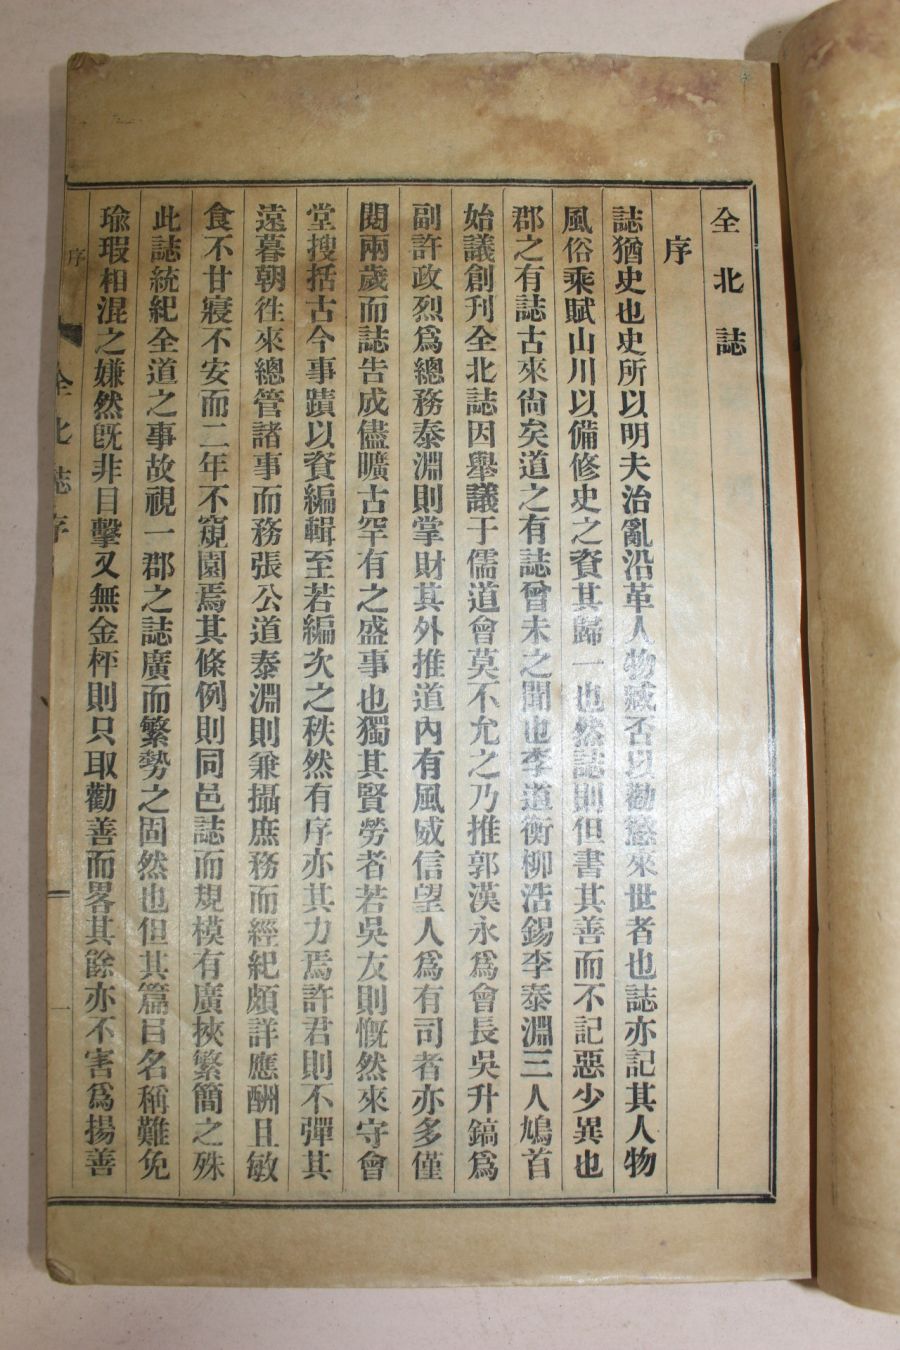 全北誌
序
誌猶史也史所以明夫治亂沿革人物臧否以勸懲來世者也誌亦記其人物
風俗乘賦山川以備修史之資其歸一也然誌則但書其善而不記惡少異也
郡之有誌古來尙矣道之有誌曾未之聞也李道衡柳浩錫李泰淵三人鳩首
始議創刊全北誌因舉議于儒道會莫不允之乃推郭漢永爲會長吳升鎬爲
副許政烈爲總務泰淵則掌財其外推道內有風威信望人爲有司者亦多僅
閱兩歲而誌告成儘曠古罕有之盛事也獨其賢勞者若吳友則慨然來守會
堂搜括古今事蹟以資編輯至若編次之秩然有序亦其力焉許君則不彈其
遠暮朝徃來總管諸事而務張公道泰淵則兼攝庶務而經紀頗詳應酬且敏
食不甘寢不安而二年不窺園焉其條例則同邑誌而規模有廣挾繁簡之殊
此誌統紀全道之事故視一郡之誌廣而繁勢之固然也但其篇目名稱難免
瑜瑕相混之嫌然旣非目擊又無金枰則只取勸善而畧其餘亦不害爲揚善
序
全北誌序
一